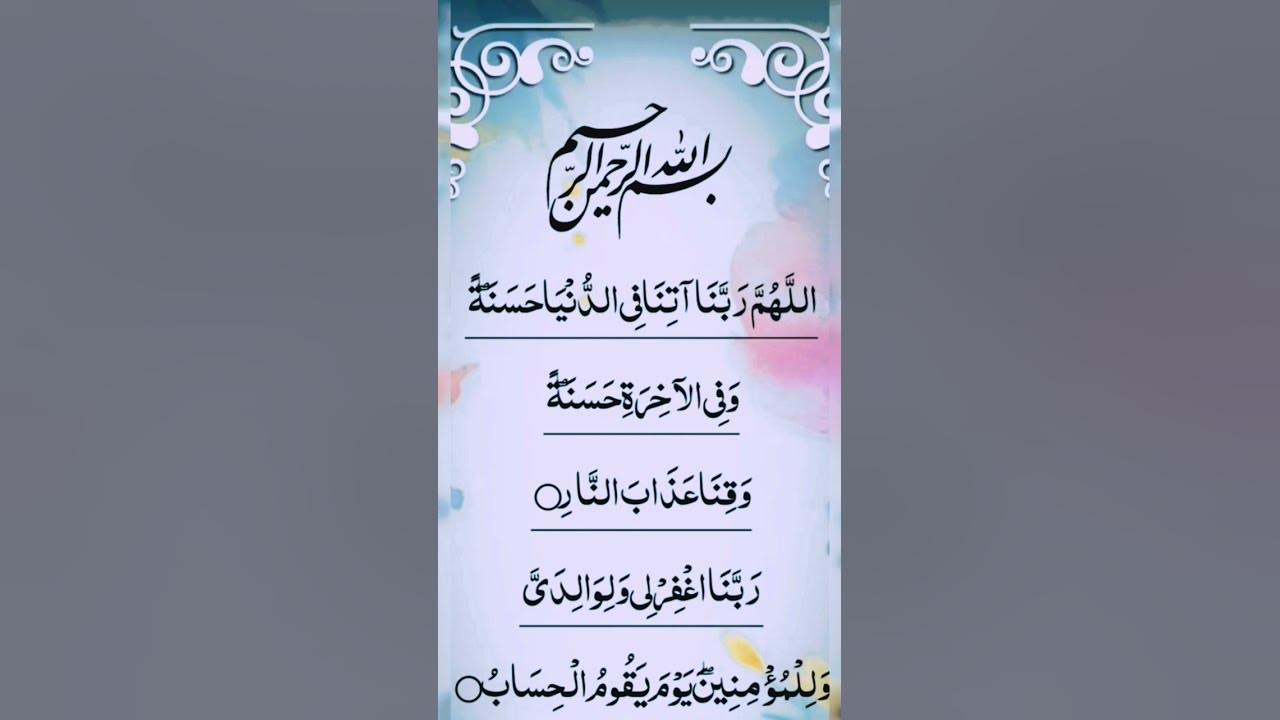 بسم الله الرحمن الرحيم
اللَّهُمَّ رَبَّنَا آتِنَا فِى الدُّنْيَا حَسَنَةً
وَفِى الآخِرَةِ حَسَنَةً
وَقِنَا عَذَابَ النَّارِ○
رَبَّنَا اغْفِرْلِى وَلِوَالِدَىَّ
وَلِلْمُؤْمِنِينَ يَوْمَ يَقُومُ الْحِسَابُ○